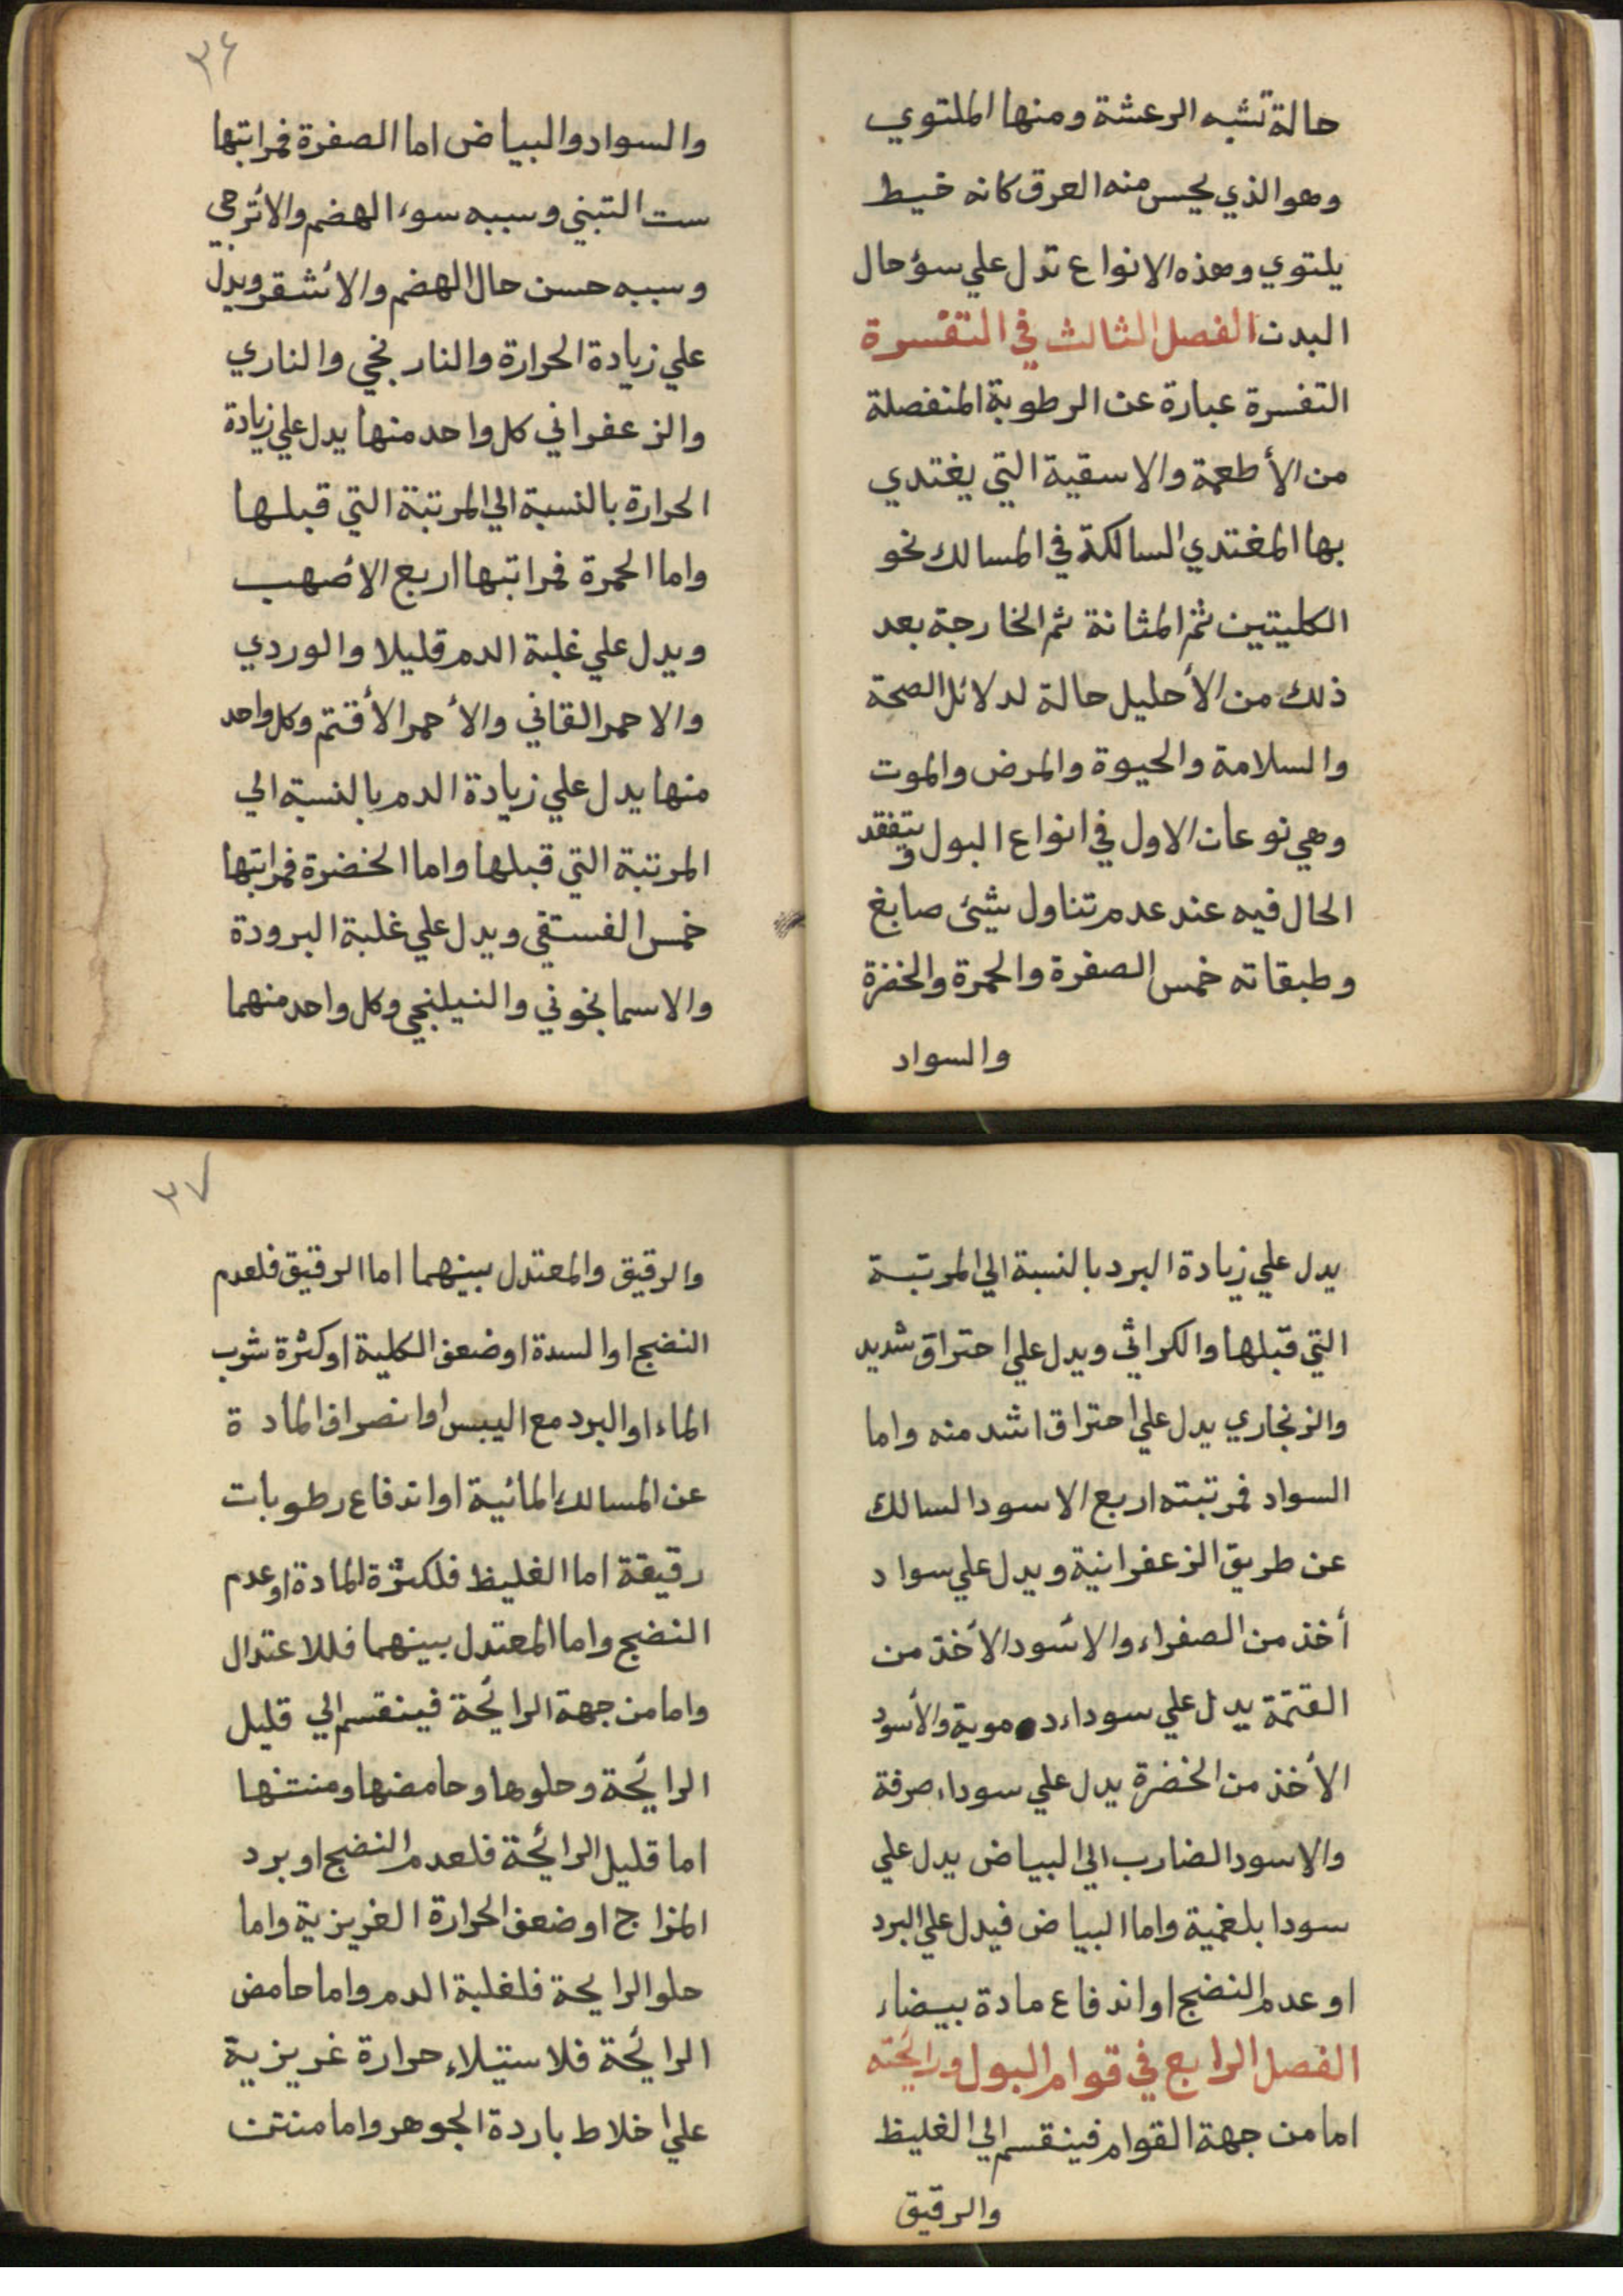 حالة تشبه الرعشة ومنها الملتوي
وهو الذي يحس منه العرق كانه خيط
يلتوي وهذه الانواع تدل علي سؤحال
البدن الفصل الثالث في التفسرة
التفسرة عبارة عن الرطوبة المنفصلة
من الأطعمة والاسقية التي يغتدي
بها المغتدي السالكة في المسالك نحو
الكليتين ثم المثانة ثم الخارجة بعد
ذلك من الأحليل حالة لدلائل الصحة
والسلامة والحيوة والمرض والموت
وهي نوعان الاول في انواع البول ويتفقد
الحال فيه عند عدم تناول شيئ صابغ
وطبقاته خمس الصفرة والحمرة والخضرة
والسواد
٣٦
والسواد والبياض اما الصفرة فمراتبها
ست التبني وسببه سوء الهضم والأترجي
وسببه حسن حال الهضم والأشقر ويدل
علي زيادة الحرارة والنارنجي والناري
والزعفراني كل واحد منها يدل علي زيادة
الحرارة بالنسبة الي المرتبة التي قبلها
واما الحمرة فمراتبها اربع الأصهب
ويدل علي غلبة الدم قليلا والوردي
والاحمر القاني والأحمر الأقتم وكل واحد
منها يدل علي زيادة الدم بالنسبة الي
المرتبة التي قبلها واما الخضرة فمراتبها
خمس الفستقي ويدل علي غلبة البرودة
والاسمانجوني والنيلنجي وكل واحد منهما
يدل علي زيادة البرد بالنسبة الي المرتبة
التي قبلها والكراثي ويدل علي احتراق شديد
والزنجاري يدل علي احتراق اشد منه واما
السواد فمرتبته اربع الاسود السالك
عن طريق الزعفرانية ويدل علي سواد
أخذ من الصفراء والأسود الأخذ من
القتمة يدل علي سوداء دموية والأسود
الأخذ من الخضرة يدل علي سوداء صرفة
والاسود الضارب الي البياض يدل علي
سودا بلغمية واما البياض فيدل علي البرد
او عدم النضج او اندفاع مادة بيضاء
الفصل الرابع في قوام البول ورائحته
اما من جهة القوام فينقسم الي الغليظ
والرقيق
٣٧
والرقيق والمعتدل بينهما اما الرقيق فلعدم
النضج او السدة او ضعف الكلية او كثرة شرب
الماء او البرد مع اليبس او انصراف المادة
عن المسالك المائية او اندفاع رطوبات
رقيقة اما الغليظ فلكثرة المادة او عدم
النضج واما المعتدل بينهما فللاعتدال
واما من جهة الرائحة فينقسم الي قليل
الرائحة وحلوها وحامضها ومنتنها
اما قليل الرائحة فلعدم النضج او برد
المزاج او ضعف الحرارة الغريزية واما
حلو الرايحة فلغلبة الدم واما حامض
الرائحة فلاستيلاء حرارة غريزية
علي اخلاط باردة الجوهر واما منتن